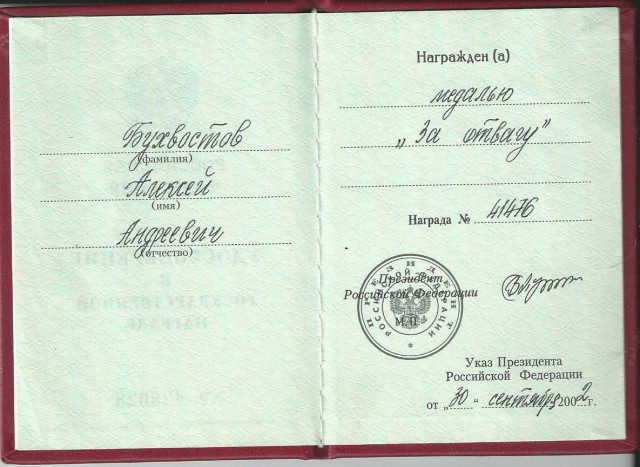 Бухвостов
(фамилия)
Алексей
(имя)
Андреевич
(отчество)
Награжден (а)
медалью
„За отвагу"
Награда № 41476
Президент
Российской Федерации
М.П.
ПРЕЗИДЕНТ
РОССИЙСКОЙ ФЕДЕРАЦИИ
Указ Президента
Российской Федерации
от „30" сентября 2002 г.